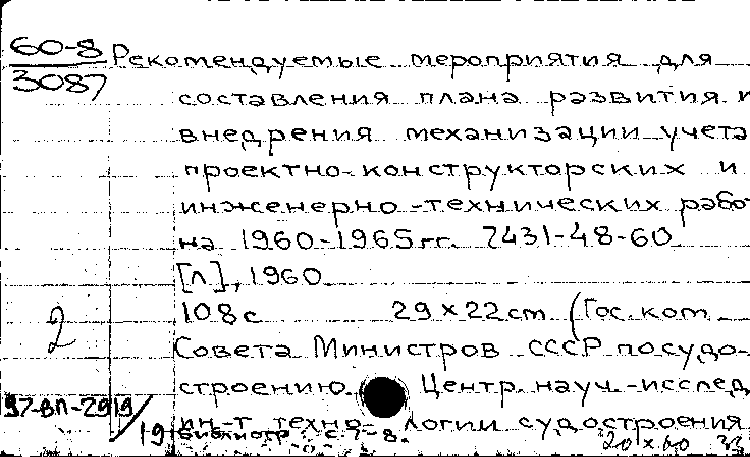 60-8
3087
Рекомендуемые мероприятия для
составления плана развития и
внедрения механизации учета
проектно-конструкторских и
инженерно-технических рабо
на 1960-1965гг. 7431-48-60
[Л], 1960
108с 29×22cm (Гос. ком.
2
Совета Министров СССР по судо-
строению. Центр. науч.-исслед
97-ВП-2919
ин-т технологии судостроения
Библиогр.: с. 7-8.
20/X 60 33